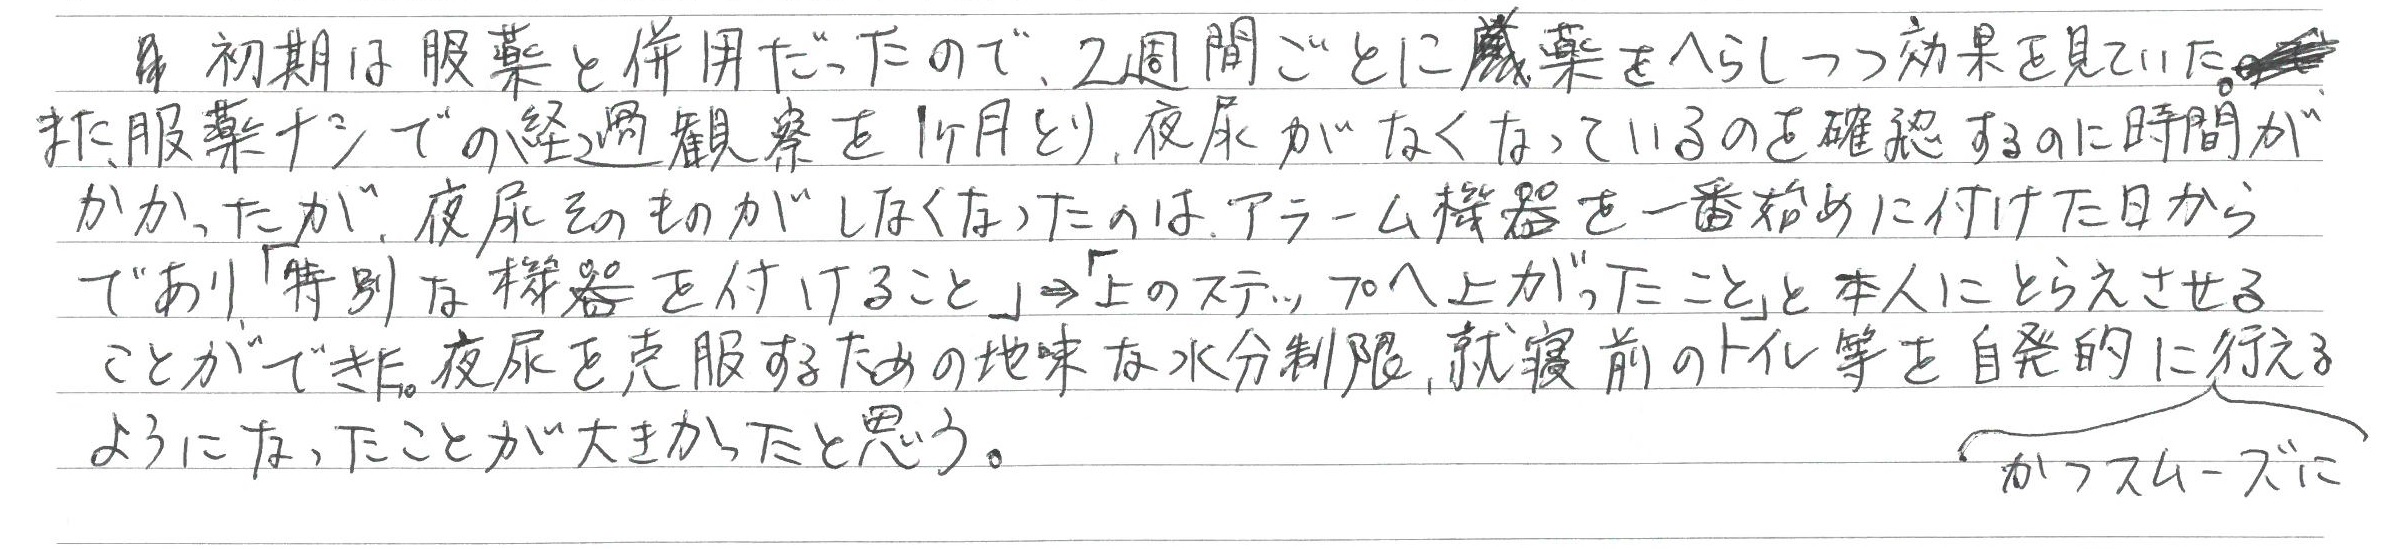 初期は服薬と併用だったので、2週間ごとに薬をへらしつつ効果を見ていた。
また、服薬ナシでの経過観察を1ヶ月とり、夜尿がなくなっているのを確認するのに時間が
かかったが、夜尿そのものがしなくなったのは、アラーム機器を一番始めに付けた日から
であり、「特別な機器を付けること」⇒「上のステップへ上がったこと」と本人にとらえさせる
ことができた。夜尿を克服するための地味な水分制限、就寝前のトイレ等を自発的に行える
ようになったことが大きかったと思う。
かつスムーズに